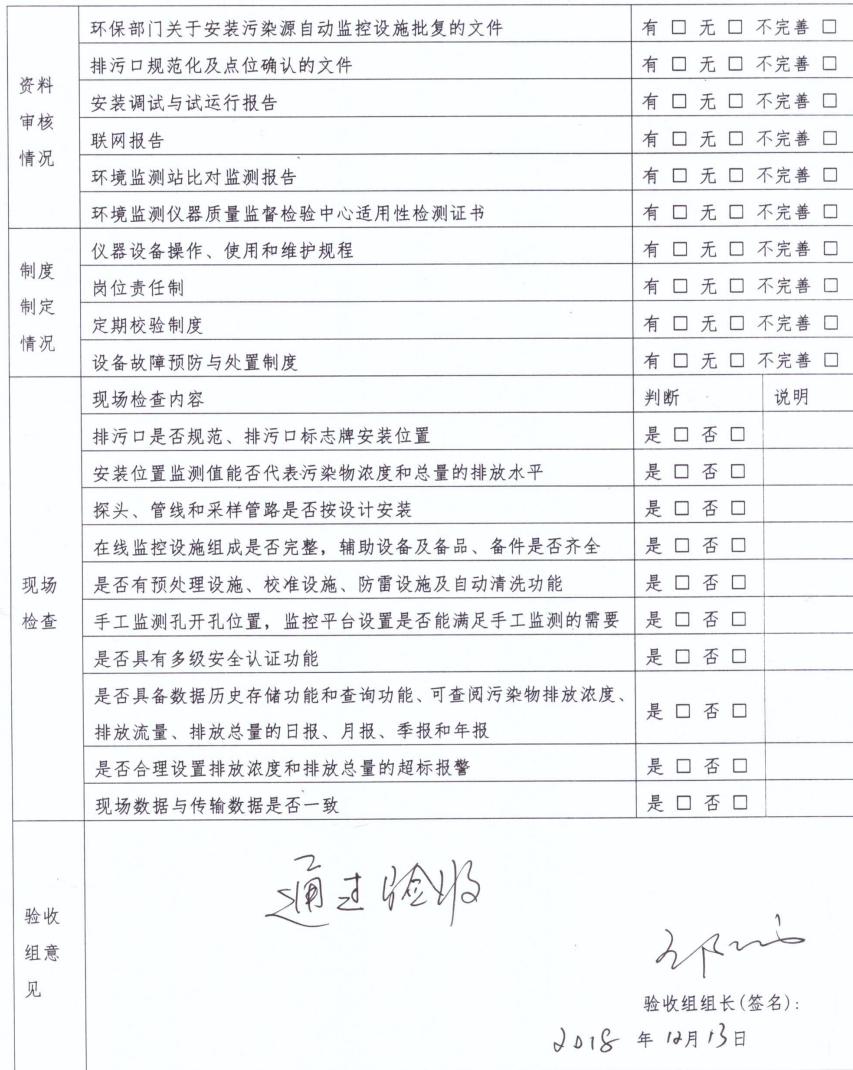 资料审核情况
环保部门关于安装污染源自动监控设施批复的文件 有 □ 无 □ 不完善 □
排污口规范化及点位确认的文件 有 □ 无 □ 不完善 □
安装调试与试运行报告 有 □ 无 □ 不完善 □
联网报告 有 □ 无 □ 不完善 □
环境监测站比对监测报告 有 □ 无 □ 不完善 □
环境监测仪器质量监督检验中心适用性检测证书 有 □ 无 □ 不完善 □
制度制定情况
仪器设备操作、使用和维护规程 有 □ 无 □ 不完善 □
岗位责任制 有 □ 无 □ 不完善 □
定期校验制度 有 □ 无 □ 不完善 □
设备故障预防与处置制度 有 □ 无 □ 不完善 □
现场检查
现场检查内容 判断 说明
排污口是否规范、排污口标志牌安装位置 是 □ 否 □
安装位置监测值能否代表污染物浓度和总量的排放水平 是 □ 否 □
探头、管线和采样管路是否按设计安装 是 □ 否 □
在线监控设施组成是否完整，辅助设备及备品、备件是否齐全 是 □ 否 □
是否有预处理设施、校准设施、防雷设施及自动清洗功能 是 □ 否 □
手工监测孔开孔位置，监控平台设置是否能满足手工监测的需要 是 □ 否 □
是否具有多级安全认证功能 是 □ 否 □
是否具备数据历史存储功能和查询功能、可查阅污染物排放浓度、
排放流量、排放总量的日报、月报、季报和年报 是 □ 否 □
是否合理设置排放浓度和排放总量的超标报警 是 □ 否 □
现场数据与传输数据是否一致 是 □ 否 □
验收组意见
通过验收
验收组组长(签名):
2018 年 12月 13日